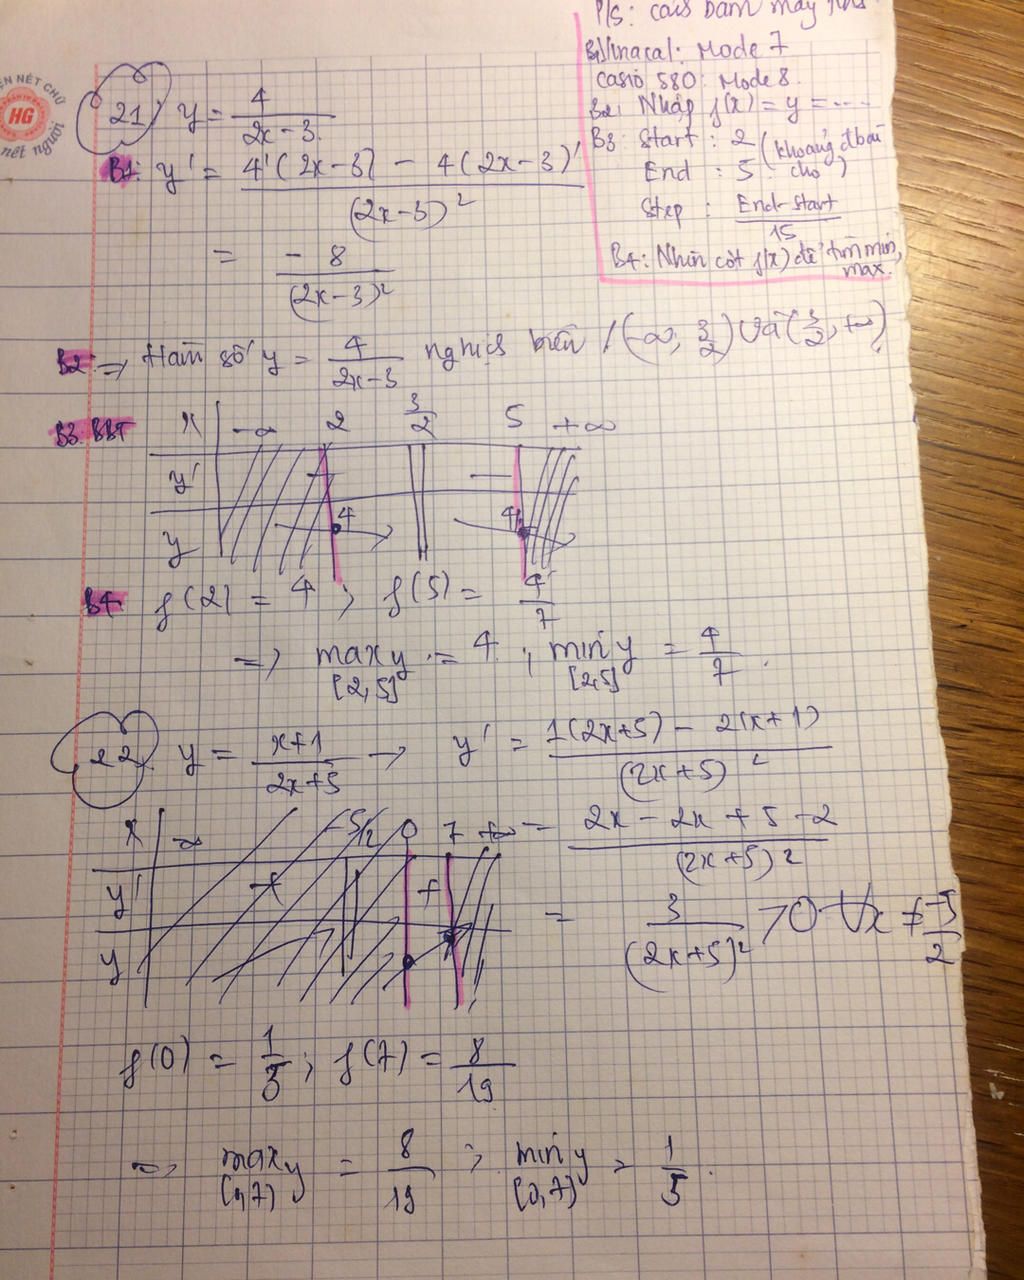 P/S: cách bấm máy tính
B1: Vinacal: Mode 7
Casio 580: Mode 8.
B2: Nhập f(x) = y = ...
B3: Start: 2 (khoảng đb cho)
End: 5
Step: End-Start/15
B4: Nhìn cột f(x) để tìm min, max.
NÉT CHỮ
HG
nết người
21) y = 4/(2x-3)
B1: y' = (4'(2x-3) - 4(2x-3)')/(2x-3)²
= -8/(2x-3)²
B2: => Hàm số y = 4/(2x-3) nghịch biến / (-∞, 3/2) và (3/2, +∞)
B3: BBT x -∞ 2 3/2 5 +∞
y' - -
y 4 4/7
B4 f(2) = 4; f(5) = 4/7
=> max y [2,5] = 4; min y [2,5] = 4/7.
22. y = (x+1)/(2x+5) → y' = (1(2x+5) - 2(x+1))/(2x+5)²
x -∞ -5/2 0 7 +∞ = (2x-2x+5-2)/(2x+5)²
y' + +
= 3/(2x+5)² > 0 ∀x ≠ -5/2
y
f(0) = 1/5; f(7) = 8/19
=> max y [0,7] = 8/19; min y [0,7] = 1/5.